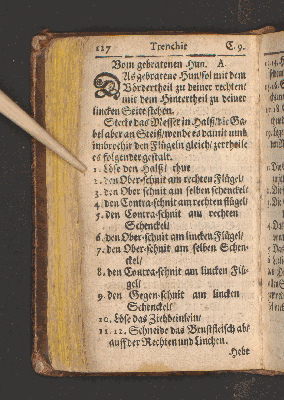 117 Trenchir C. 9.
Vom gebratenen Hun. A.
DAs gebratene Hun sol mit dem
Vördertheil zu deiner rechten/
mit dem Hintertheil zu deiner
lincken Seite stehen.
Stecke das Messer in Halß/ die Ga-
bel aber an Steiß/ wende es damit unnd
umbrechir den Flügeln gleich/ zertheile
es folgender gestalt.
1. Löse den Halß/ thue
2. den Ober-schnit am rechten Flügel/
3. den Ober-schnit am selben schenckel/
4. den Contra-schnit am rechten flügel/
5. den Contra-schnit am rechten
Schenckel/
6. den Ober-schnit am lincken Flügel/
7. den Ober-schnit am selben Schen-
ckel/
8. den Contra-schnit am lincken Flü-
gel/
9. den Gegen-schnit am lincken
Schenckel/
10. Löse das Ziehbeinlein/
11. 12. Schneide das Brustfleisch ab/
auff der Rechten und Linchen.
Hebt